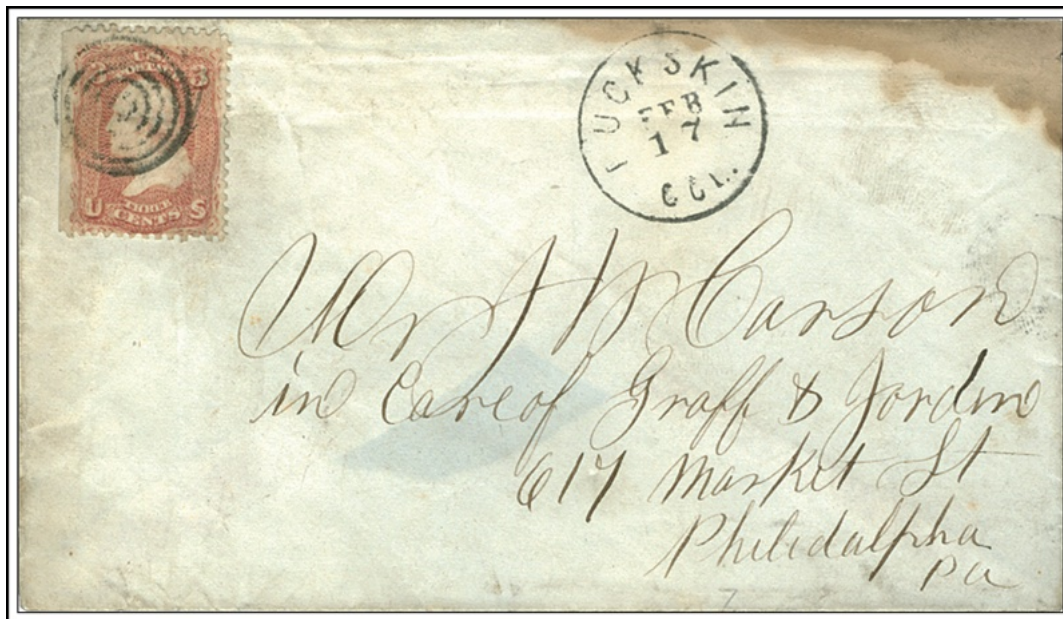 3
U THREE S
CENTS
BUCKSKIN
FEB
17
COL.
Mr J W Carson
in Care of Graff & Jordin
617 Market St
Philidalpha
Pa